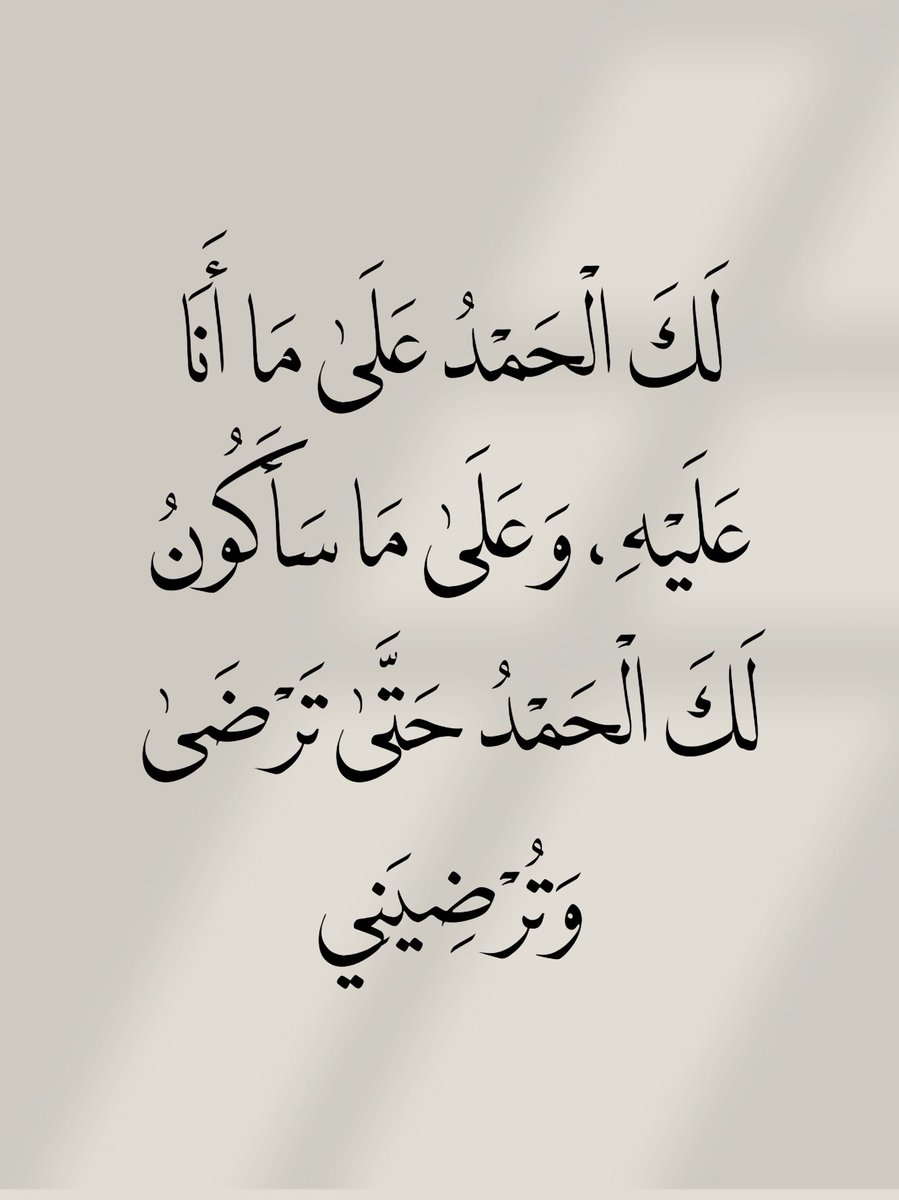 لَكَ الْحَمْدُ عَلَىٰ مَا أَنَا
عَلَيْهِ ، وَعَلَىٰ مَا سَأَكُونُ
لَكَ الْحَمْدُ حَتَّىٰ تَرْضَىٰ
وَتُرْضِيَنِي